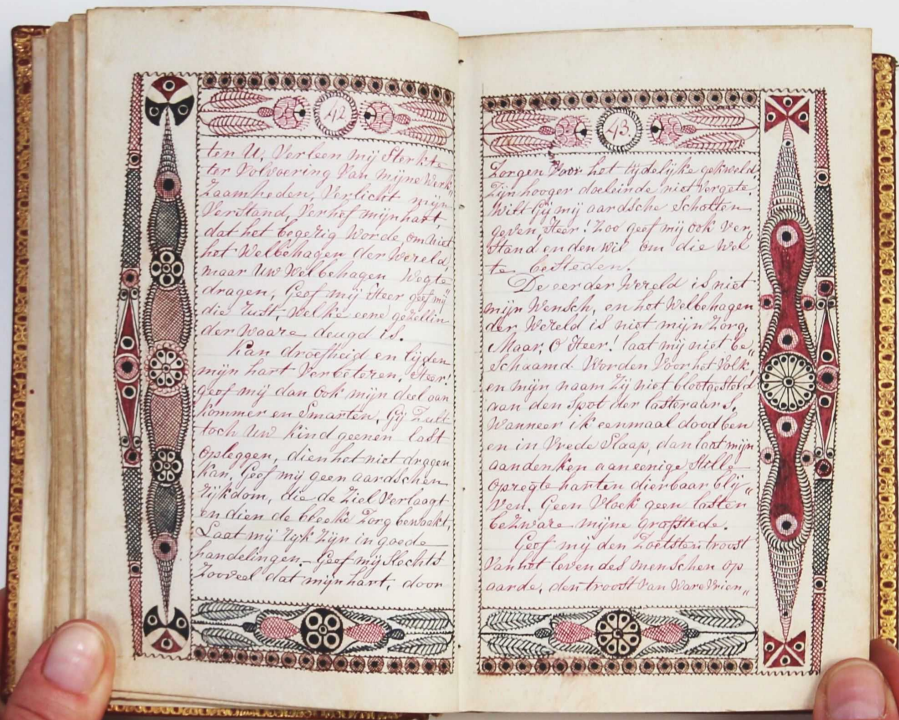 42
ten U, Verleen mij Sterkte
ter Volvoering Van mijne Werk
Zaamheden, Verlicht mijn
Verstand, Verhef mijn hart,
dat het begerig Worde, om Niet
het Welbehagen der Wereld,
maar Uw Welbehagen Weg te
dragen, Geef mij Heer geef mij
die rust, Welke eene gezellin
der Waare deugd is.
Kan droefheid en lijden
mijn hart Verbeteren, Heer!
geef mij dan ook mijn deel van
Kommer en Smarten, Gij Zult
toch Uw Kind geenen last
opleggen, dien het niet dragen
Kan, Geef mij geen aardschen
rijkdom, die de Ziel Verlaagt
en dien de bleeke Zorg bewaakt,
Laat mij rijk Zijn in goede
handelingen. Geef mij Slechts
Zooveel dat mijn hart, door
43
Zorgen Voor het tijdelijke gekweld
Zijn hooger doeleinde niet Vergete
Wilt Gij mij aardsche Schatten
geven Heer! Zoo geef mij ook Ver
stand en den Wil om die Wel
te besteden.
De eer der Wereld is niet
mijn Wensch, en het Welbehagen
der Wereld is niet mijn Zorg,
Maar, O Heer! laat mij niet be„
schaamd Worden Voor het Volk,
en mijn naam Zij niet blootgesteld
aan den Spot der lasteraars,
Wanneer ik eenmaal dood ben
en in Vrede Slaap, dan laat mijn
aandenken aan eenige Stille
Opregte harten dierbaar blij„
Ven. Geen Vloek geen lasten
bezware mijne Grafstede.
Geef mij den Zoetsten troost
Van het leven des menschen op
aarde, den troost Van Ware Vrien„